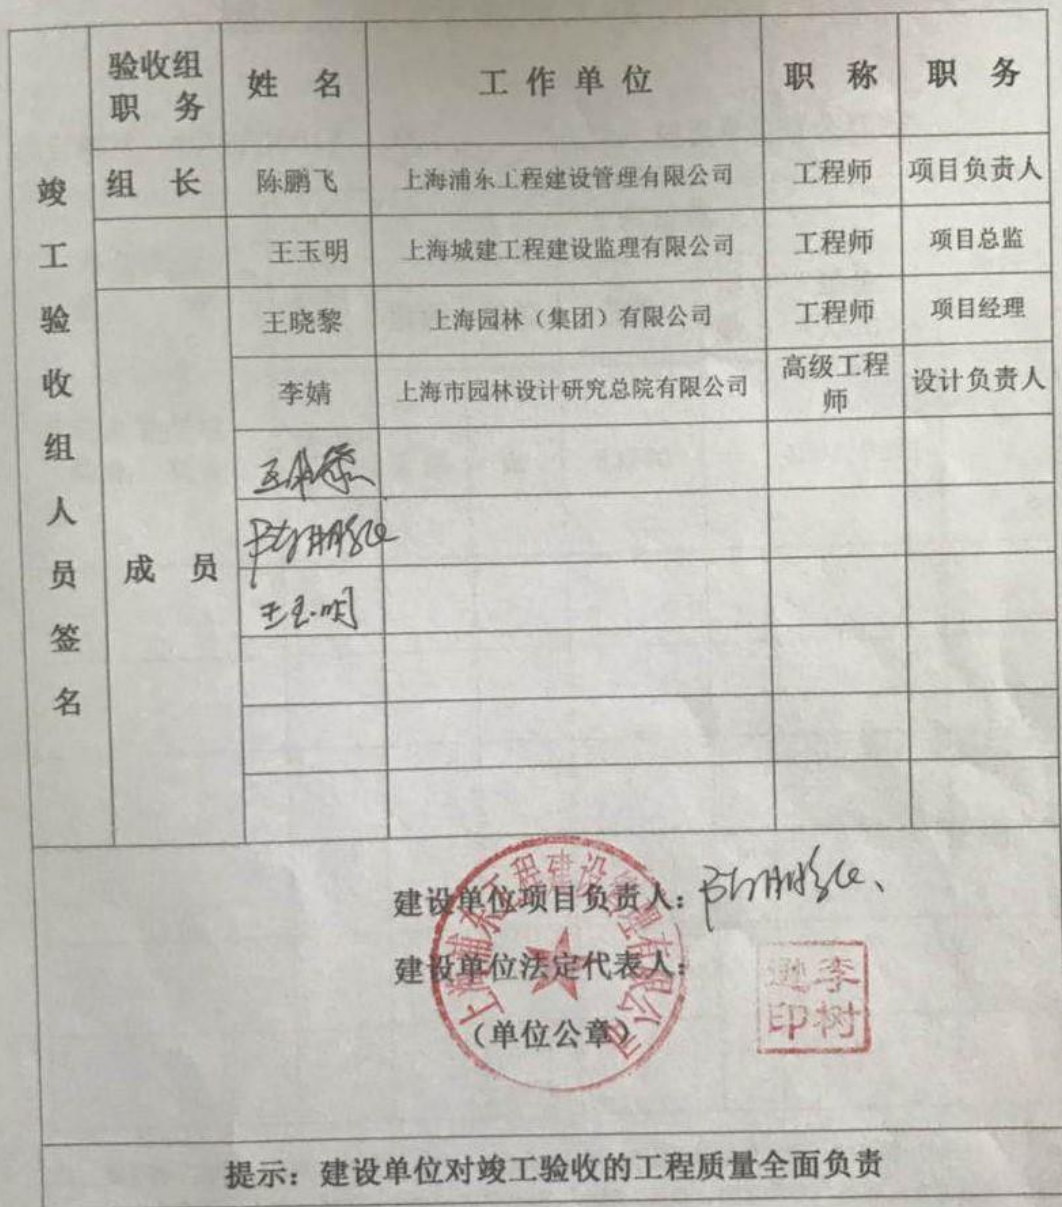 竣工验收组人员签名
验收组职务 姓名 工作单位 职称 职务
组长 陈鹏飞 上海浦东工程建设管理有限公司 工程师 项目负责人
王玉明 上海城建工程建设监理有限公司 工程师 项目总监
成员
王晓黎 上海园林（集团）有限公司 工程师 项目经理
李婧 上海市园林设计研究总院有限公司 高级工程师 设计负责人
王晓黎
陈鹏飞
王玉明
建设单位项目负责人：陈鹏飞
建设单位法定代表人：
（单位公章）
上海浦东工程建设管理有限公司
李树逊印
提示：建设单位对竣工验收的工程质量全面负责